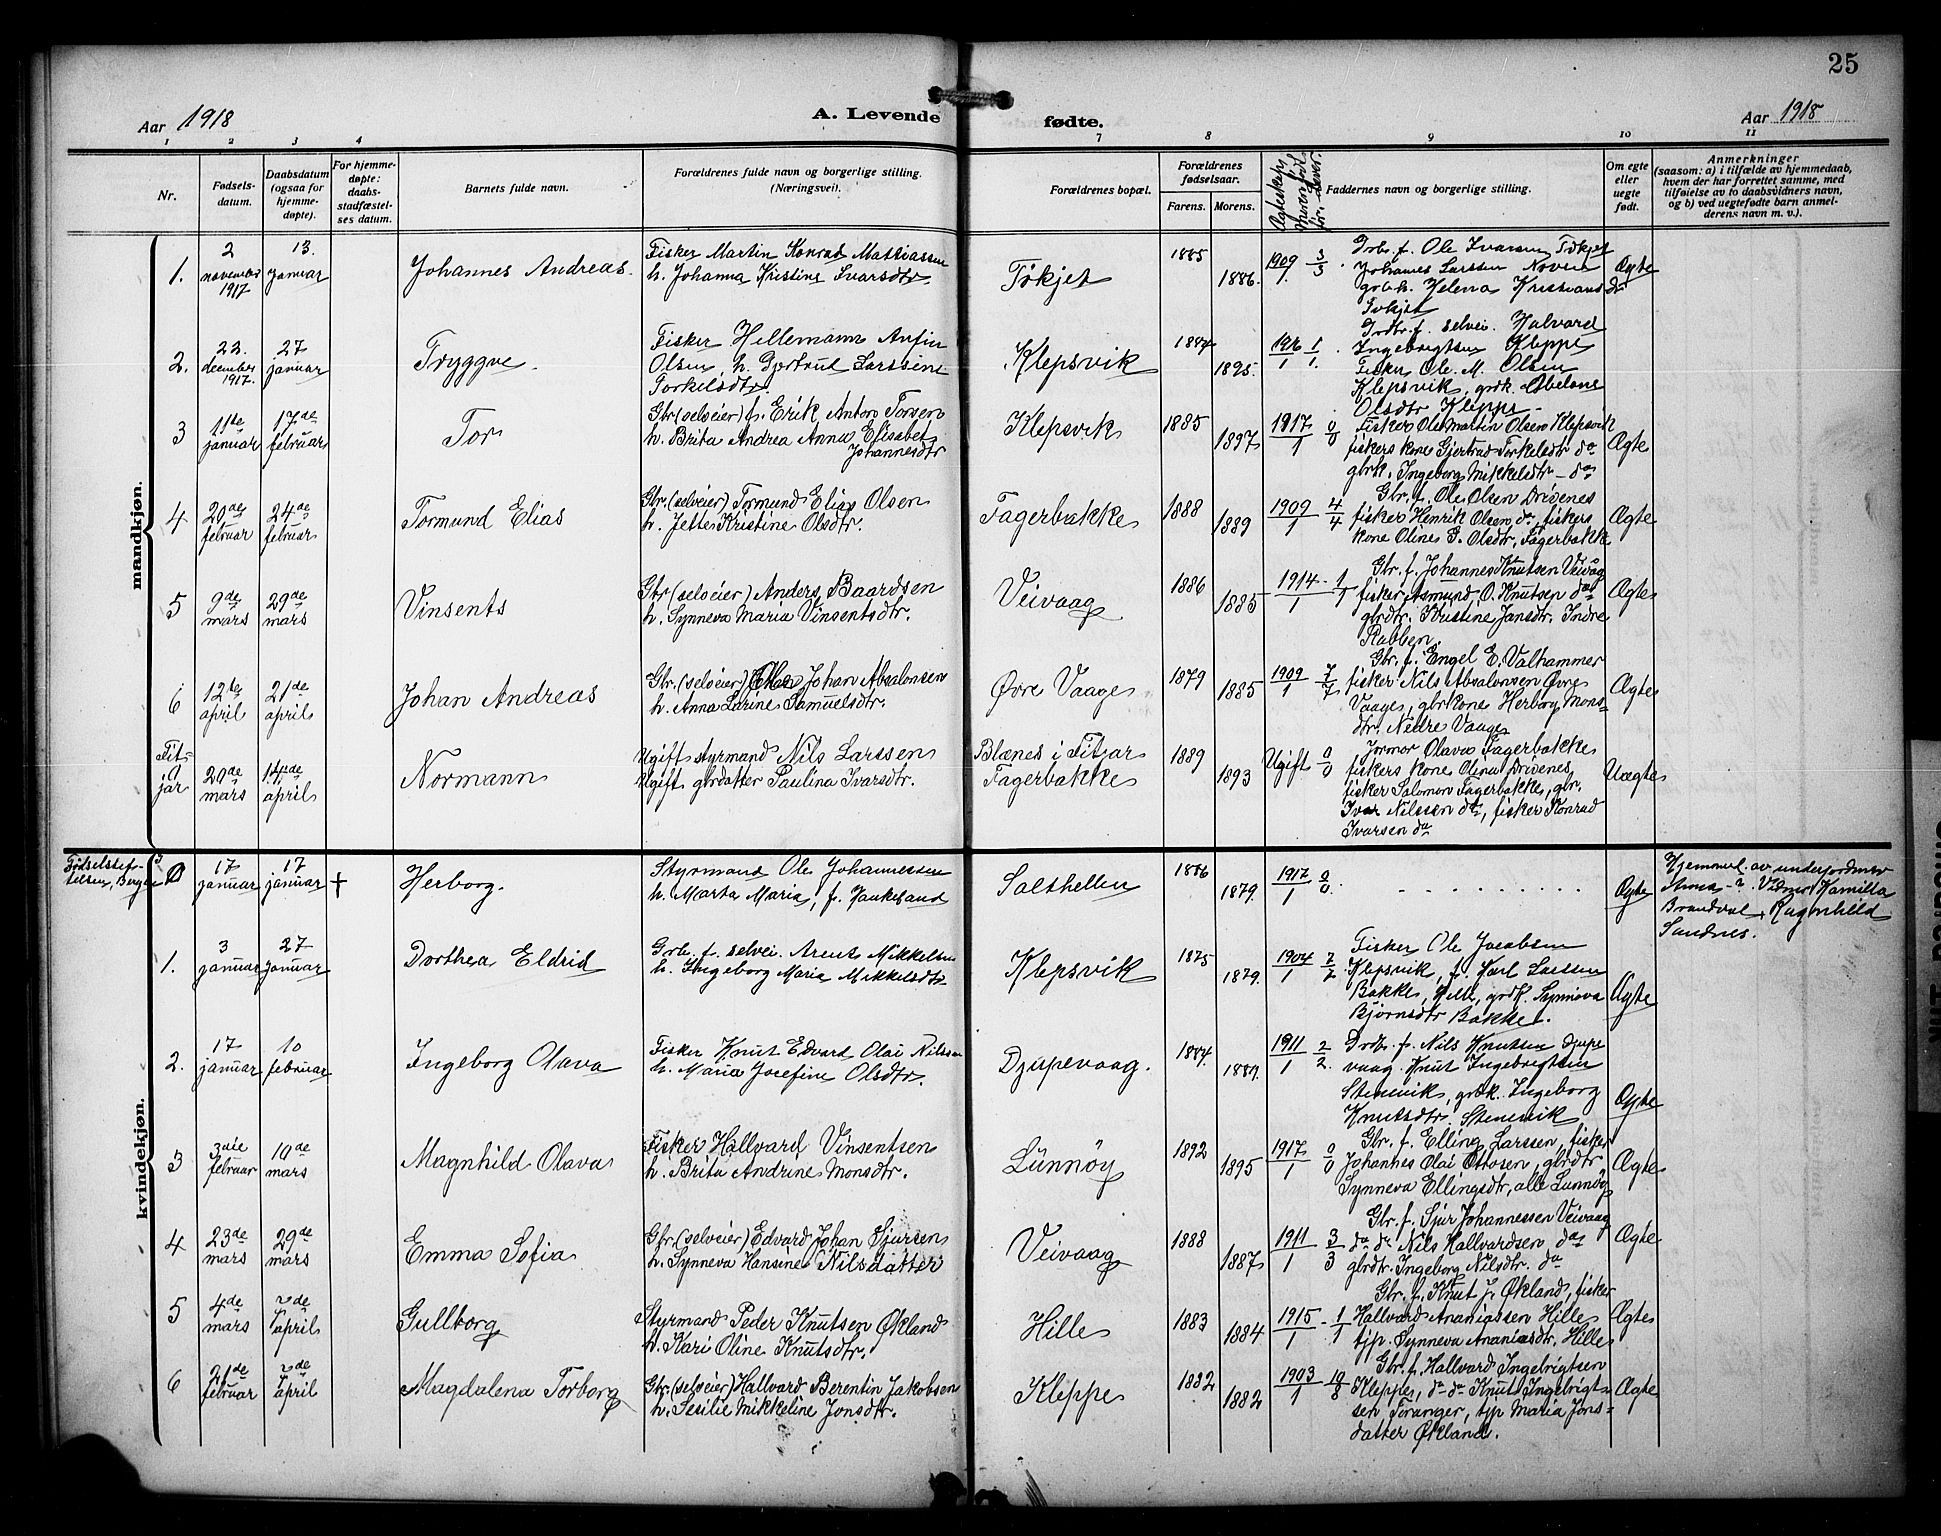 25
Aar 1918
A. Levende
fødte.
Aar 1918
1 2 3 4
7 8 9 10 11
Nr.
Fødsels-
datum.
Daabsdatum
(ogsaa for
hjemme-
døpte).
For hjemme-
døpte:
daabs-
stadfæstel-
ses datum.
Barnets fulde navn.
Forældrenes fulde navn og borgerlige stilling.
(Næringsvei).
Forældrenes bopæl.
Forældrenes
fødselsaar.
Farens. Morens.
Faddernes navn og borgerlige stilling.
Om egte
eller
uegte
født.
Anmerkninger
(saasom: a) i tilfælde av hjemmedaab,
hvem der har forrettet samme, med
tilføielse av to daabsvidners navn,
og b) ved uegtefødte barn anmel-
derens navn m. v.).
mandkjøn.
1.
2
november
1917
13.
januar
Johannes Andreas.
Fisker Martin Konrad Mattiassen
h. Johanna Kristine Ivarsdtr
Tökjet
1885
1886.
1909 3/3
1.
Grb. f. Ole Ivarsen Tökjet
Johannes Larssen
grbk. Helena Kristiansdtr
Tökjet
Ægte
2.
22.
december
1917.
27
januar
Tryggve.
Fisker Hillemann Anfin
Olsen, h. Gjertrud Larssine
Torkelsdtr.
Klepsvik
1895.
1916 1/1.
1
Grdbr. f. selvei. Halvard
Ingebrigtsen Kleppe
Fisker Ole M. Olsen
Klepsvik, grbk. Abelone
Olsdtr Kleppe
3
11te
januar
17de
februar
Tor
Gbr. (selveier) f. Erik Anton Torsen
h. Brita Andrea Anna Elisabet
Johannesdtr
Klepsvik
1885
1897
1917 0/0
1
Fisker Ole Martin Olsen Klepsvik
fiskers kone Gjertrud Torkelsdtr do
gbrk. Ingeborg Mikkelsdtr - do
Ægte
4
20de
februar
24de
februar
Tormund Elias
Gbr. (selveier) Tormund Elias Olsen
h. Jette Kristine Olsdtr.
Fagerbakke
1888
1889
1909 4/4
1
Gbr. f. Ole Olsen Drivenes
fisker Henrik Olsen do, fiskers
kone Olines G. Olsdtr, Fagerbakke
Ægte
5
9de
mars
29de
mars
Vinsents
Gbr (selveier) Anders Baardsen
h. Synneva Maria Vinsentsdtr.
Veivaag
1886
1885
1914 - 1/1
1
Gbr. f. Johannes Knutsen Veivaag
fisker Asmund O. Knutsen do
gbrdtr. Kristine Jansdtr. Indre
Rabben.
Ægte
6
12te
april
21de
april
Johan Andreas
Gbr. (selveier) Johan Absalonsen
h. Anna Larine Samuelsdtr.
Øvre Vaage
1879
1885
1909 7/7
1
Gbr. f. Engel E. Valhammer
fisker Nils Absalonsen Øvre
Vaage, gbrkone Herborg Mons-
dtr. Nedre Vaage
Ægte
Fit-
jar
20de
mars
14de
april
Normann
Ugift styrmand Nils Larssen
Ugift gbrdatter Paulina Ivarsdtr.
Blænes i Fitjar
Fagerbakke
1889
1893
Ugift 0/0
Jormor Olava Fagerbakke
fiskers kone Olina Drivenes
fisker Salomon Fagerbakke, gbr.
Ivar Nilssen do, fisker Konrad
Ivarsen do
Uægte
kvindekjøn.
Fødselsstif-
telsen, Bergen
0
17
januar
17
januar
†
Herborg.
Styrmand Ole Johannessen
h. Marta Maria, f. Haukeland
Salthellen
1886
1879.
1917 0/0
1
. . . . . . . . . .
Ægte
Hjemmed. av underjordmor
Anna - ? Vidner Kamilla
Brandval, Ragnhild
Sandnes.
1.
3
januar
27
januar
Dorthea Eldrid
Grb. f. selvei. Arents Mikkelsen
h. Ingeborg Maria Mikkelsdtr
Klepsvik
1875
1879.
1904 2/2
1
Fisker Ole Jacobsen
Klepsvik, f. Karl Larssen
Bakke, Hille, grdk. Synnöva
Bjørnsdtr Bakke.
Ægte
2.
17
januar
10
februar
Ingeborg Olava
Fisker Knut Edvard Olai Nilssen
h. Maria Josefine Olsdtr.
Djupevaag.
1884.
1889.
1911 2/2.
1
Grdbr. f. Nils Knutsen Djupe
vaag. Knut Ingebrigtsen
Stenevik, grbk. Ingeborg
Knutsdtr. Stenevik
Ægte
3
3die
februar
10de
mars
Magnhild Olava
Fisker Hallvard Vinsentsen
h. Brita Andrine Monsdtr.
Lünnöy
1892
1895
1917 0/0
1
Gbr. f. Elling Larssen, fisker
Johannes Olai Ottosen, gbrdtr
Synneva Ellingsdtr, alle Lunnöy
Ægte
4
23de
mars
29de
mars
Emma Sofia
Gbr. (selveier) Edvard Johan Sjursen
h. Synneva Hansine Nilsdatter
Veivaag
1888
1887
1911 3/3
1
Gbr. f. Sjur Johannessen Veivaag
do do Nils Hallvardsen do
gbrdtr. Ingeborg Nilsdtr. do
Ægte
5
4de
mars
7de
april
Gullborg
Styrmand Peder Knutsen Økland
h. Kari Oline Knutsdtr.
Hille
1883
1884
1915 - 1/1
1
Gbr. f. Knut J. Økland, fisker
Hallvard Ananiassen Hille
tjp. Synneva Ananiasdtr. Hille
Ægte
6
21de
februar
7de
april
Magdalena Torborg
Gbr. (selveier) Hallvard Berentin Jakobsen
h. Sesilie Mikkeline Jonsdtr.
Kleppe
1882
1882
1903 10/8
1
Gbr. f. Hallvard Ingebrigtsen
Kleppe, do do Knut Ingebrigt-
sen Toranger, tjp Maria Jons-
datter Økland.
Ægte